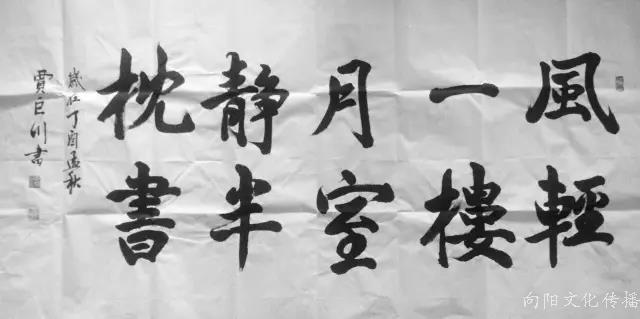 風輕
一樓
月室
靜半
枕書
歲在丁酉孟秋
賈巨川書
向阳文化传播